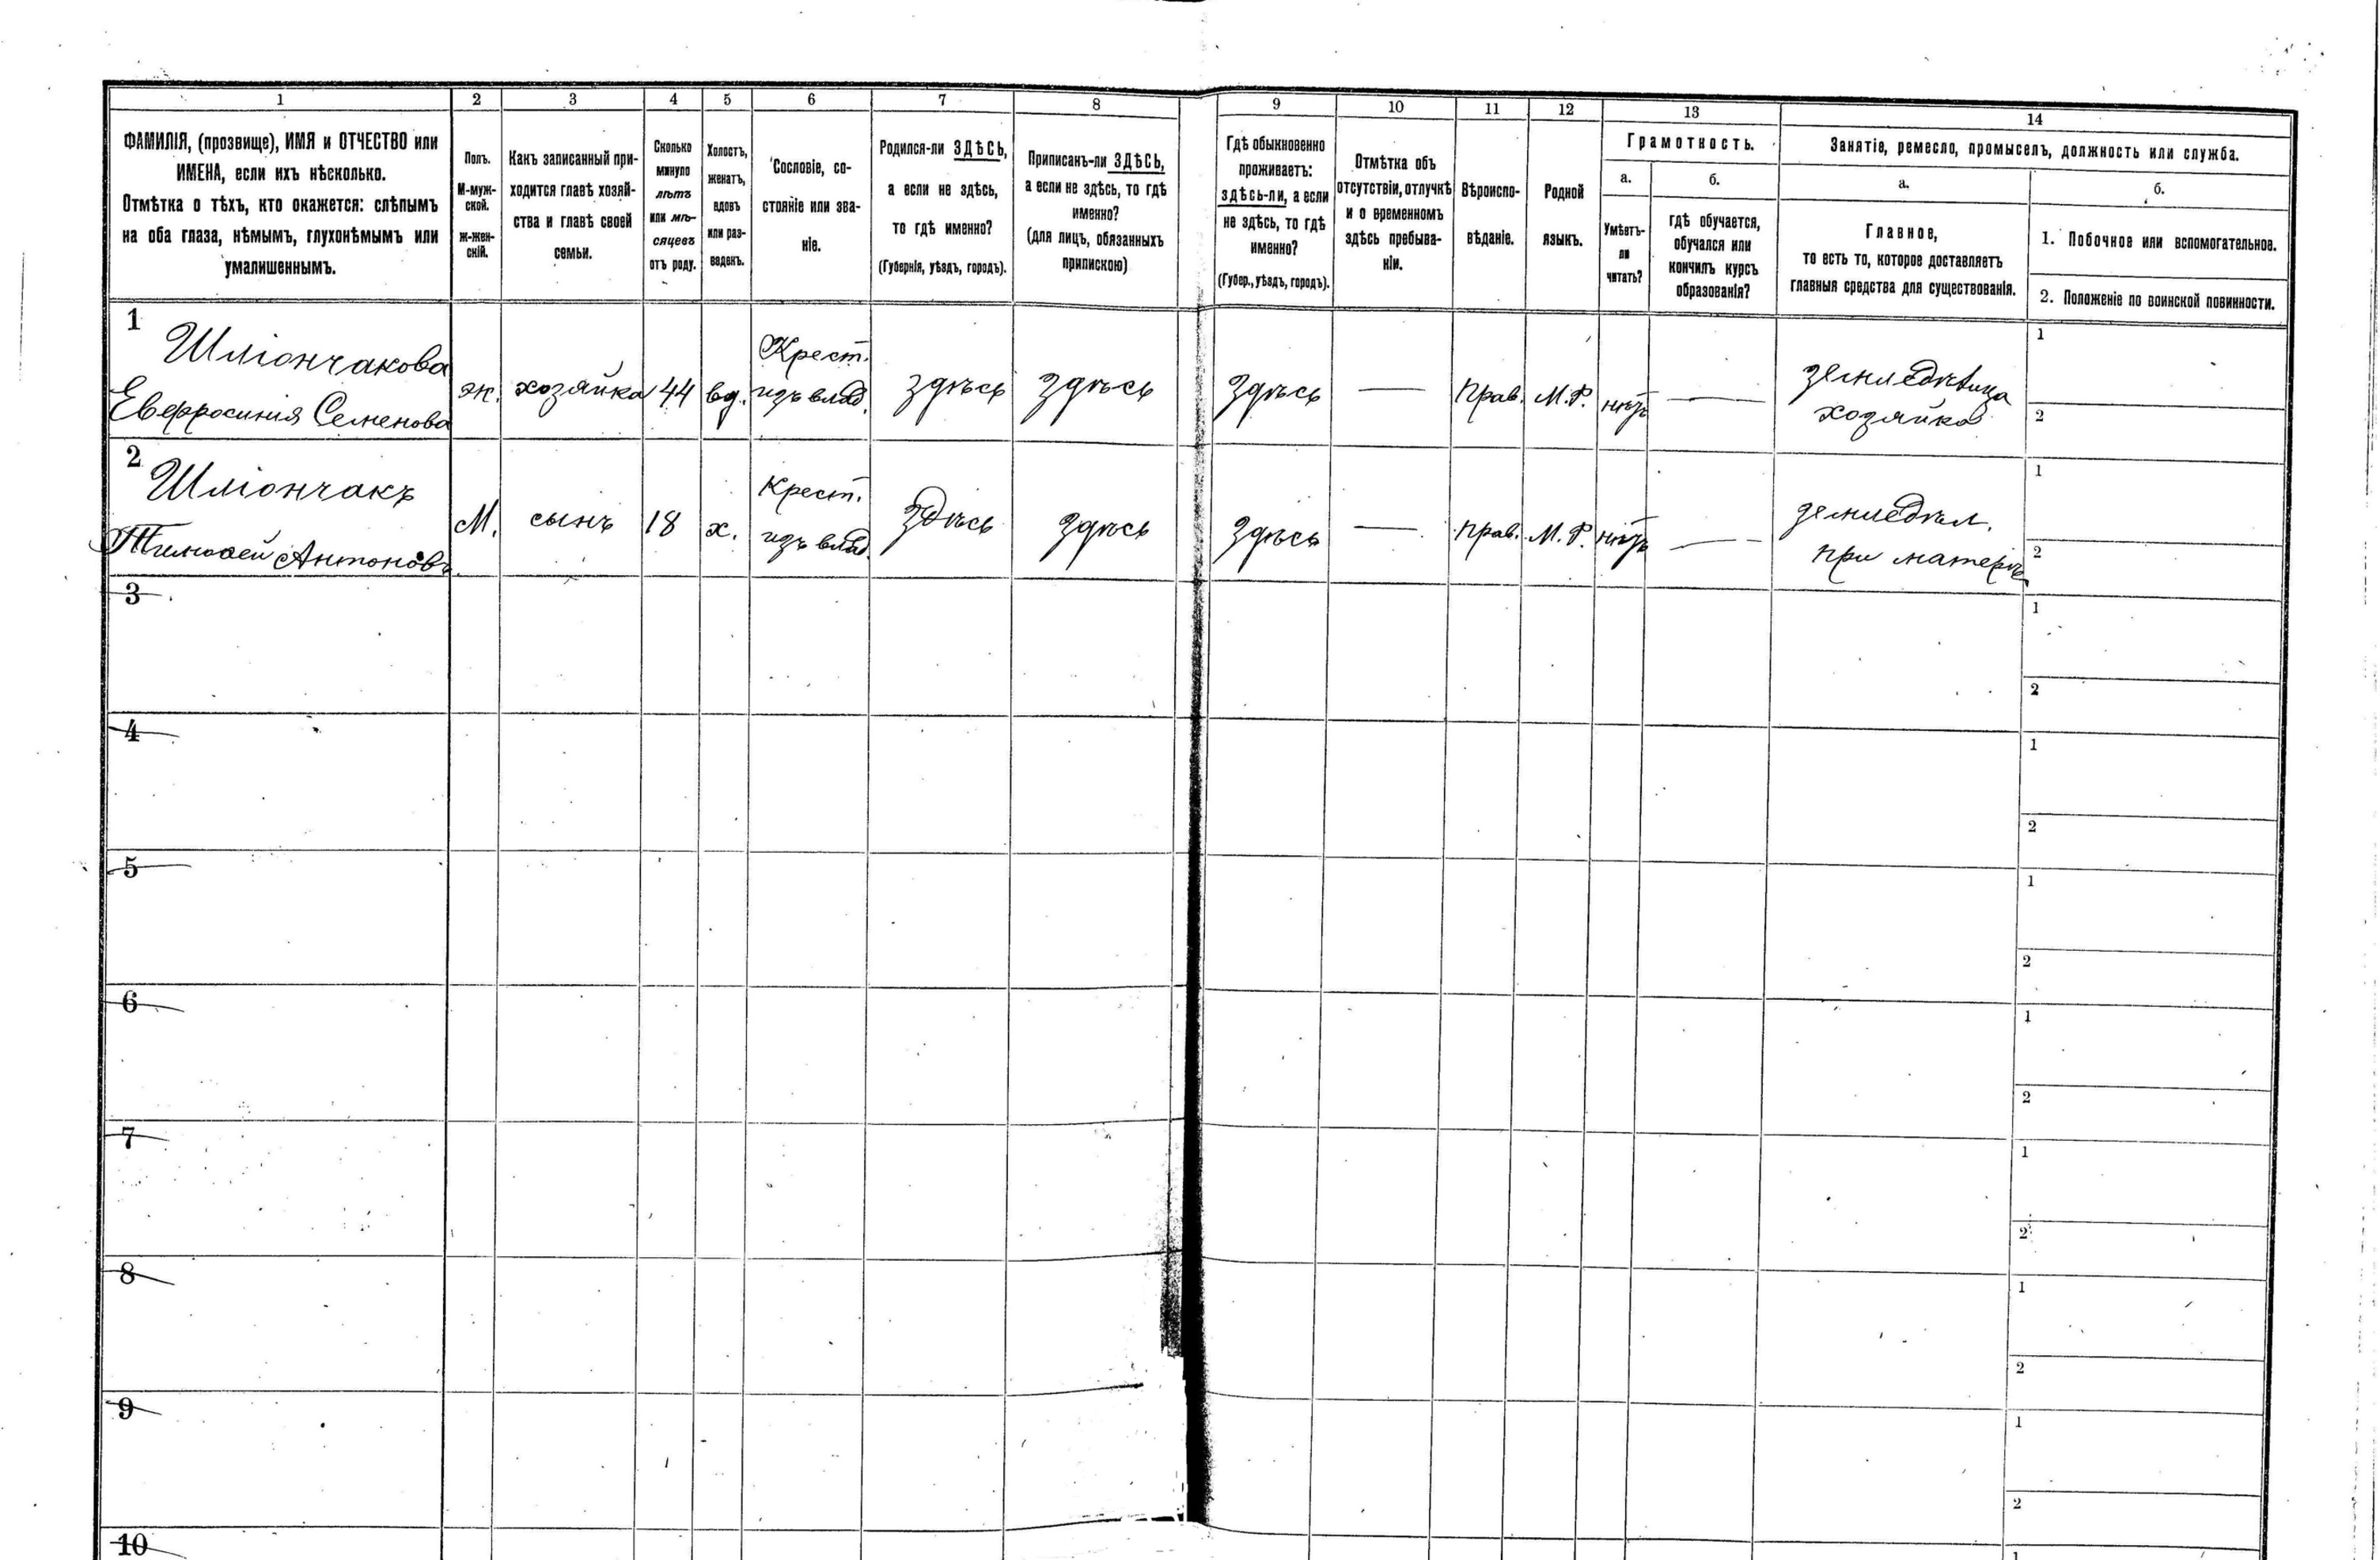 1 2 3 4 5 6 7 8 9 10 11 12 13 14
ФАМИЛІЯ, (прозвище), ИМЯ и ОТЧЕСТВО или
ИМЕНА, если ихъ нѣсколько.
Отмѣтка о тѣхъ, кто окажется: слѣпымъ
на оба глаза, нѣмымъ, глухонѣмымъ или
умалишеннымъ.
Полъ.
М-муж-
ской.
ж-жен-
скій.
Какъ записанный при-
ходится главѣ хозяй-
ства и главѣ своей
семьи.
Сколько
минуло
лѣтъ
или мѣ-
сяцевъ
отъ роду.
Холостъ,
женатъ,
вдовъ
или раз-
веденъ.
Сословіе, со-
стояніе или зва-
ніе.
Родился-ли ЗДѢСЬ,
а если не здѣсь,
то гдѣ именно?
(Губернія, уѣздъ, городъ).
Приписанъ-ли ЗДѢСЬ,
а если не здѣсь, то гдѣ
именно?
(для лицъ, обязанныхъ
припискою)
Гдѣ обыкновенно
проживаетъ:
здѣсь-ли, а если
не здѣсь, то гдѣ
именно?
(Губер., уѣздъ, городъ).
Отмѣтка объ
отсутствіи, отлучкѣ
и о временномъ
здѣсь пребыва-
ніи.
Вѣроиспо-
вѣданіе.
Родной
языкъ.
Грамотность.
а.
Умѣетъ-
ли
читать?
б.
гдѣ обучается,
обучался или
кончилъ курсъ
образованія?
Занятіе, ремесло, промыселъ, должность или служба.
а.
Главное,
то есть то, которое доставляетъ
главныя средства для существованія.
б.
1. Побочное или вспомогательное.
2. Положеніе по воинской повинности.
1
Шліончакова
Евфросинія Семенова
ж.
хозяйка
44
вд.
Крест.
изъ влад.
здѣсь
здѣсь
здѣсь
—
Прав.
М.Р.
нѣтъ
—
хозяйка
1
2
2
Шліончакъ
Тимофей Антоновъ
М.
сынъ
18
х.
Крест.
изъ влад.
здѣсь
здѣсь
здѣсь
—
прав.
М.Р.
нѣтъ
—
земледѣл.
при матери
1
2
3
1
2
4
1
2
5
1
2
6
1
2
7
1
2
8
1
2
9
1
2
10
1